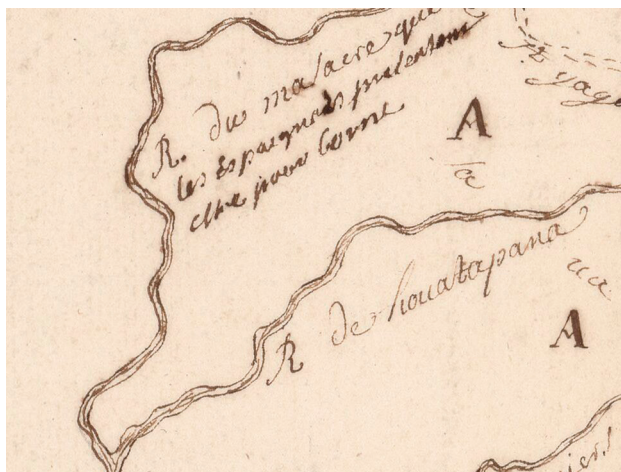 R. du masacre que
les Espaignols pretendent
estre pour borne
A
R de houatapana
A
iers